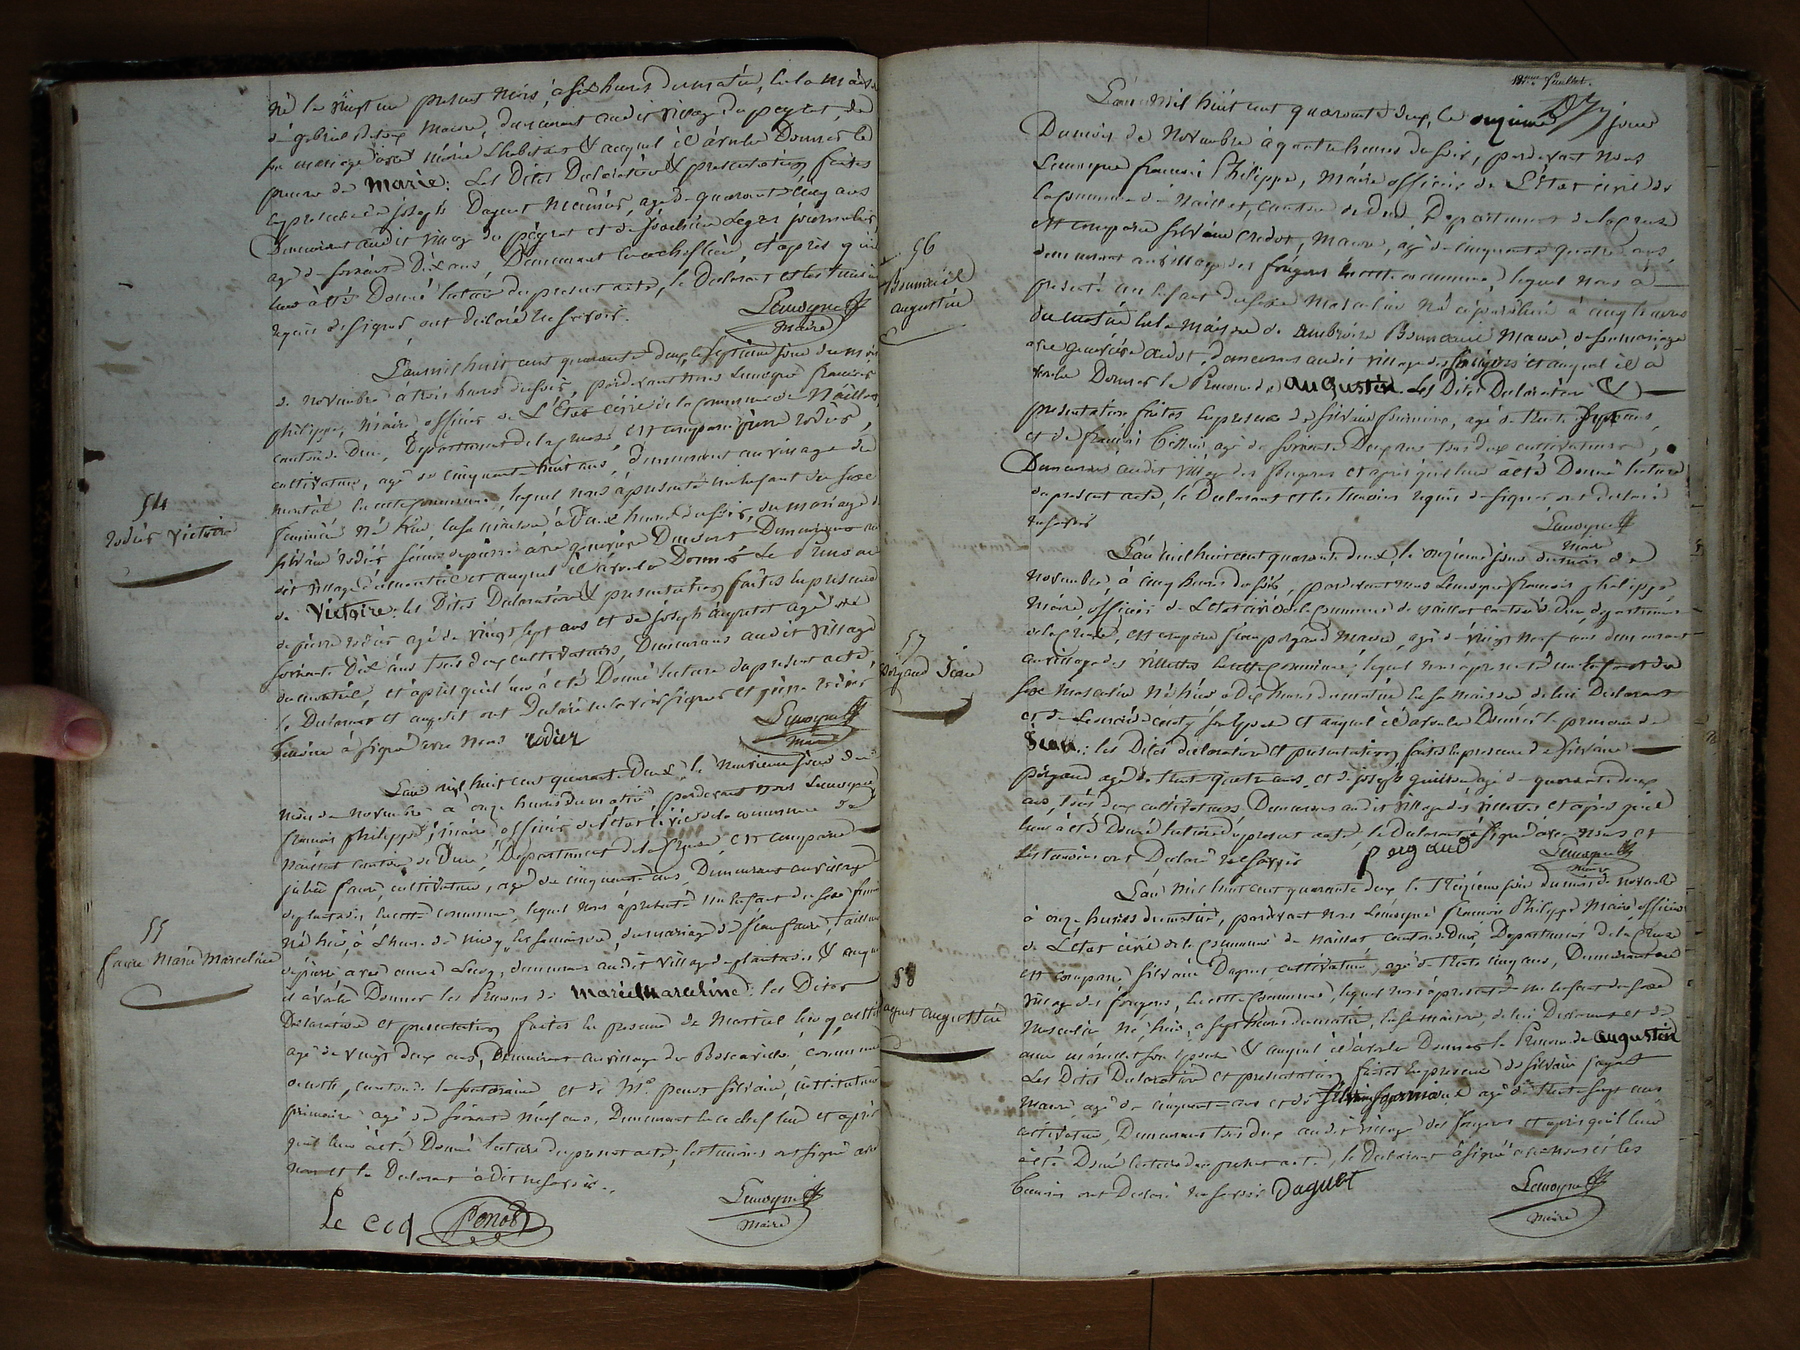 né le vingt un présent mois, à six heures du matin, en la maison
de gabriel maçon, demeurant au dit village du peyrat, de
son mariage avec marie & auquel il a voulu Donner le
prenom de Marie: Les Dites Declaration & présentation faites
en présence de joseph Daguet menuisier, agé de quarante cinq ans
Demeurant au dit village du peyrat et de Leger journalier,
agé de soixante Dix ans, Demeurant en ce chef lieu, et après qu'il
leur à été Donné lecture du present acte, le Declarant et les temoins
requis de signer, ont declaré ne savoir.
Lemoyne
Maire
54
rodier victoire
L'an mil huit cent quarante deux, le septieme jour du mois
de novembre à trois heures du soir, pardevant nous Lemoyne françois
philippe, Maire officier de L'Etat civil de la commune de Naillat,
canton de Dun, Departement de la creuse, est comparu pierre rodier,
cultivateur, agé de cinquante huit ans, demeurant au village de
en cette commune, lequel nous à presenté un Enfant du sexe
feminin né hier en sa maison à heures du soir, du mariage de
silvain rodier fils de pierre avec geneviève Dumont Demeurant au
dit village et auquel il a voulu Donner Le Prenom
de Victoire: les Dites Declaration & présentation faites en présence
de pierre rodier agé de vingt sept ans et de joseph agé de
soixante Dix ans tous deux cultivateurs, Demeurans au dit village
et après qu'il leur à été Donné lecture du present acte,
le Declarant et ont Declaré ne savoir signer et pierre rodier
temoin à signé avec nous rodier
Lemoyne
Maire
55
favre Marie Marceline
L'an mil huit cent quarante Deux, le neuvieme jour du
mois de novembre à onze heures du matin, pardevant nous Lemoyne
françois philippe, maire officier de l'état civil de la commune de
naillat canton de Dun, Departement de la Creuse, est comparu
julien favre, cultivateur, agé de cinquante ans, Demeurant au village
de plantadis, en cette commune, lequel nous à presenté un Enfant du sexe feminin
né hier, à L'heure de en sa maison, du mariage de jean favre, tailleur
de pierre avec Lecoq, demeurans au dit village de plantadis & auquel
il à voulu Donner les Prenoms de Marie Marceline: les Dites
Declaration et présentation faites en présence de Martial lecoq
agé de vingt deux ans, Demeurant au village du commune
canton de la souterraine et de Mr penot silvain, instituteur
primaire agé de soixante neuf ans, Demeurant en ce chef lieu et après
qu'il leur à été Donné lecture du present acte, les temoins ont signé avec
nous et le Declarant à Dit ne savoir.
Le coq Penot
Lemoyne
Maire
feuillet
L'an mil huit cent quarante deux, le onzieme jour
Du mois de Novembre à quatre heures du soir, pardevant nous
Lemoyne françois Philippe, Maire officier de L'État civil de
la commune de Naillat, canton de Dun, Département de la Creuse
est comparu silvain credot, Maçon, agé de cinquante quatre ans,
demeurant au village des fougères en cette commune, lequel nous à
presenté un enfant du sexe Masculin né à cinq heures
du matin en la maison de ambroise Maçon, de son mariage
avec geneviève credot, demeurans au dit village des fougères et auquel il a
voulu Donner le Prenom de augustin. Les Dites Declaration &
présentation faites en présence de silvain agé de trente sept ans,
et de françois agé de soixante Deux ans tous deux cultivateurs,
Demeurans au dit village des fougeres et après qu'il leur à été Donné lecture
du present acte, le Declarant et les temoins requis de signer ont declaré
ne savoir
Lemoyne
Maire
56
augustin
L'an mil huit cent quarante deux, le onzieme jour du mois de
novembre, à cinq heures du soir, pardevant nous Lemoyne françois philippe
Maire officier de L'etat civil de la commune de naillat canton de Dun, département
de la Creuse, est comparu jean pergaud Maçon, agé de vingt neuf ans demeurant
au village des villettes en cette commune; lequel nous à presenté un enfant du
sexe Masculin né hier à Dix heures du matin en sa maison de lui Declarant
et de son épouse et auquel il à voulu Donner le prenom de
Jean: les Dites declaration et présentation faites en présence de silvain
pergaud agé de trente quatre ans, et de joseph agé de quarante deux
ans, tous deux cultivateurs Demeurans au dit village des villettes et après qu'il
leur à été Donné lecture du present acte, le Declarant à signé avec nous et
les temoins ont Declaré ne savoir pergaud
Lemoyne
Maire
57
pergaud Jean
L'an Mil huit cent quarante deux le treizieme jour du mois de novembre
à onze heures du matin, pardevant nous Lemoyne françois Philippe Maire officier
de L'état civil de la commune de naillat canton de Dun, Departement de la Creuse
est comparu silvain Daguet cultivateur, agé de trente cinq ans, Demeurant au
village des fougères, en cette commune, lequel nous à presenté un enfant du sexe
Masculin né, hier, à sept heures du matin, en sa maison, de lui Declarant et de
son épouse & auquel il à voulu Donner le Prenom de augustin
Les Dites Declaration et présentation faites en présence de silvain
maçon agé de cinquante ans et de agé de trente sept ans
cultivateur, Demeurans tous deux au dit village des fougeres et après qu'il leur
à été Donné lecture du present acte, le Declarant à signé avec nous et les
temoins ont Declaré ne savoir Daguet
Lemoyne
Maire
58
daguet augustin